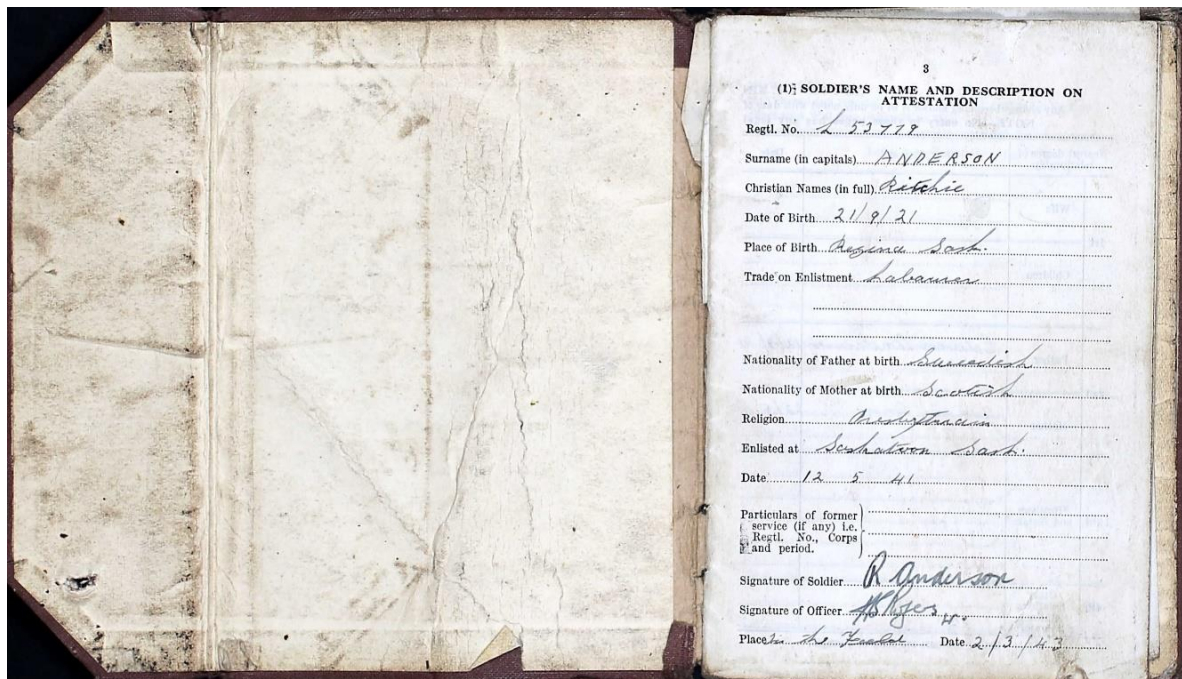 3
(1) SOLDIER'S NAME AND DESCRIPTION ON
ATTESTATION
Regtl. No. L 53779
Surname (in capitals) ANDERSON
Christian Names (in full) Ritchie
Date of Birth 21/9/21
Place of Birth Regina Sask.
Trade on Enlistment Labourer
Nationality of Father at birth Sweedish
Nationality of Mother at birth Scotish
Religion Presbytrain
Enlisted at Saskatoon Sask.
Date 12 5 41
Particulars of former
service (if any) i.e.
Regtl. No., Corps
and period.
Signature of Soldier R Anderson
Signature of Officer
Place In the Field Date 2/3/43